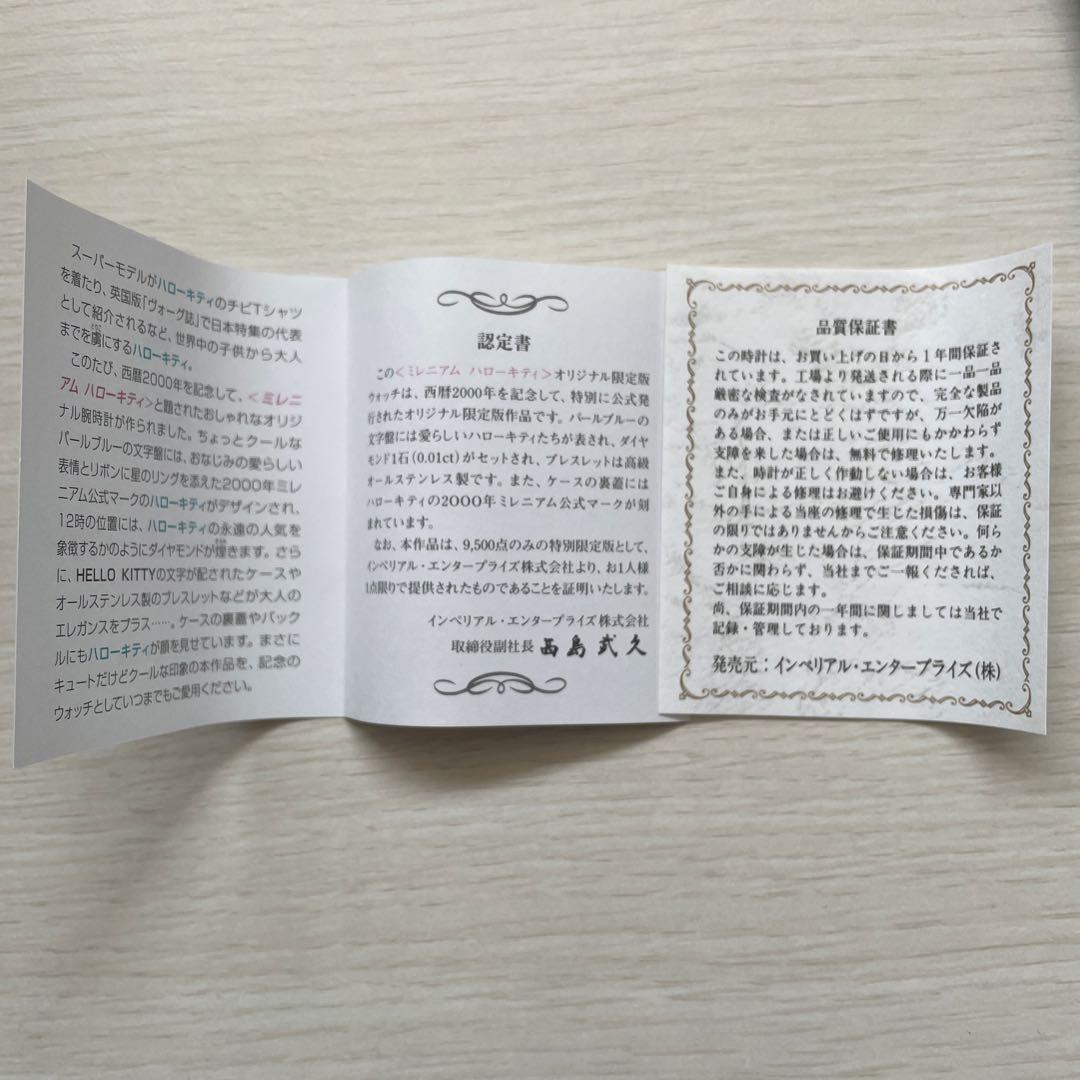 スーパーモデルがハローキティのチビTシャツ
を着たり、英国版「ヴォーグ誌」で日本特集の代表
として紹介されるなど、世界中の子供から大人
までを虜にするハローキティ。
このたび、西暦2000年を記念して、＜ミレニ
アム ハローキティ＞と題されたおしゃれなオリジ
ナル腕時計が作られました。ちょっとクールな
パールブルーの文字盤には、おなじみの愛らしい
表情とリボンに星のリングを添えた2000年ミレ
ニアム公式マークのハローキティがデザインされ、
12時の位置には、ハローキティの永遠の人気を
象徴するかのようにダイヤモンドが煌きます。さら
に、HELLO KITTYの文字が配されたケースや
オールステンレス製のブレスレットなどが大人の
エレガンスをプラス……。ケースの裏蓋やバック
ルにもハローキティが顔を見せています。まさに
キュートだけどクールな印象の本作品を、記念の
ウォッチとしていつまでもご愛用ください。
認定書
この＜ミレニアム ハローキティ＞オリジナル限定版
ウォッチは、西暦2000年を記念して、特別に公式発
行されたオリジナル限定版作品です。パールブルーの
文字盤には愛らしいハローキティたちが表され、ダイヤ
モンド1石(0.01ct)がセットされ、ブレスレットは高級
オールステンレス製です。また、ケースの裏蓋には
ハローキティの2000年ミレニアム公式マークが刻
まれています。
なお、本作品は、9,500点のみの特別限定版として、
インペリアル・エンタープライズ株式会社より、お1人様
1点限りで提供されたものであることを証明いたします。
インペリアル・エンタープライズ株式会社
取締役副社長 西島武久
品質保証書
この時計は、お買い上げの日から1年間保証さ
れています。工場より発送される際に一品一品
厳密な検査がなされていますので、完全な製品
のみがお手元にとどくはずですが、万一欠陥が
ある場合、または正しいご使用にもかかわらず
支障を来した場合は、無料で修理いたします。
また、時計が正しく作動しない場合は、お客様
ご自身による修理はお避けください。専門家以
外の手による当座の修理で生じた損傷は、保証
の限りではありませんからご注意ください。何ら
かの支障が生じた場合は、保証期間中であるか
否かに関わらず、当社までご一報くだされば、
ご相談に応じます。
尚、保証期間内の一年間に関しましては当社で
記録・管理しております。
発売元：インペリアル・エンタープライズ(株)